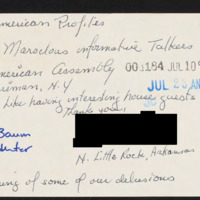 American Profiles
Maroclous informative Talkers
American Assembly 003184 JUL 10
riman, N.Y JUL 23 AN
Like having interesting house guests
Thank you
Baum
N. Little Rock, Arkansas
ing of some of our delusions